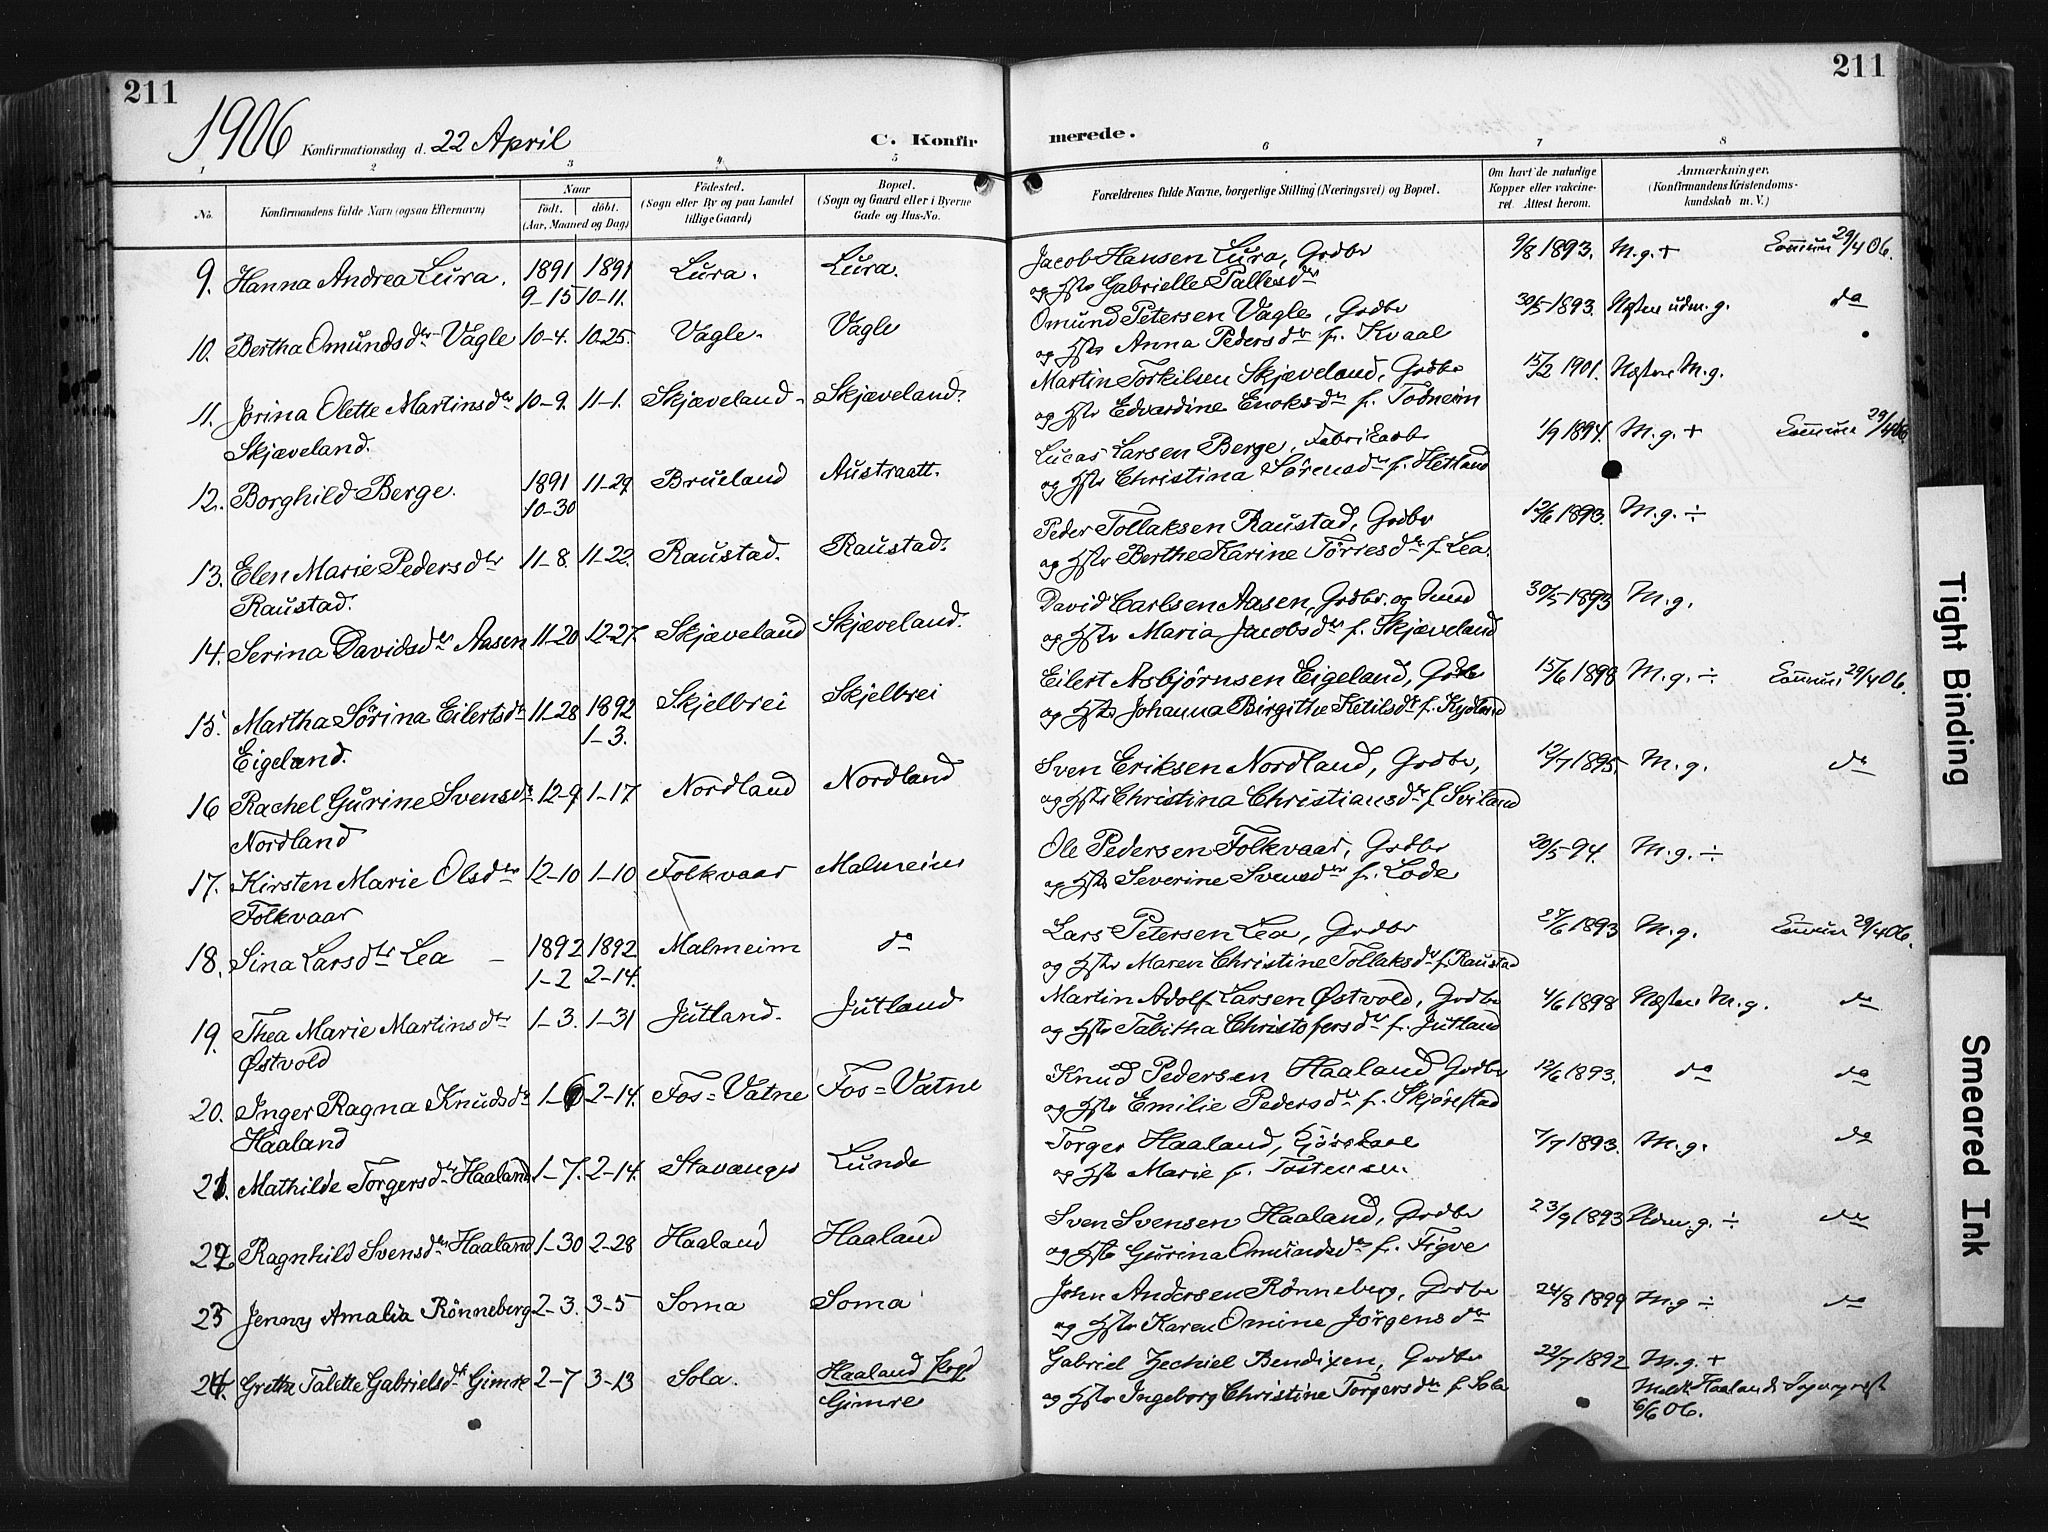 211
211
1906 Konfirmationsdag d. 22 April
C. Konfir merede.
1 2 3 4 5 6 7 8
No.
Konfirmandens fulde Navn (ogsaa Efternavn)
Naar
födt. döbt.
(Aar, Maaned og Dag)
Födested.
(Sogn eller By og paa Landet
tillige Gaard)
Bopæl.
(Sogn og Gaard eller i Byerne
Gade og Hus-No.
Forældrenes fulde Navne, borgerlige Stilling (Næringsvei) og Bopæl.
Om havt de naturlige
Kopper eller vakcine-
ret. Attest herom.
Anmærkninger.
(Konfirmandens Kristendoms-
kundskab m. V.)
9. Hanna Andrea Lura. 1891 1891 Lura. Lura. Jacob Hansen Lura, Grdbr 9/8 1893. M.g.+ 29/4 06.
9-15 10-11. og Hstr Gabrielle Tallesdtr
10. Bertha Omundsdtr Vagle 10-4. 10-25. Vagle. Vagle Omund Petersen Vagle, Grdbr 30/5-1893. Næsten udm.g. do
og Hstr Anna Pedersdtr f. Kvaal
11. Jorina Olette Martinsdtr 10-9. 11-1. Skjæveland. Skjæveland. Martin Torkilsen Skjæveland, Grdbr 15/2 1901. Næsten M.g.
Skjæveland. og Hstr Edvardine Enoksdtr f. Todneim
12. Borghild Berge. 1891 11-29 Brueland Austraatt. Lucas Larsen Berge, Fabrikarb 1/9 1894. M.g.+ 29/4 06
10-30 og Hstr Christina Sørensdtr f. Hetland
13. Elen Marie Pedersdtr 11-8. 11-22. Raustad. Raustad. Peder Tollaksen Raustad, Grdbr 12/6 1893. M.g. ÷
Raustad. og Hstr Berthe Karine Torriesdtr f. Lea.
14. Serina Davidsdtr Aasen 11-20 12-27. Skjæveland Skjæveland. David Carlsen Aasen, Grdbr. og Smed 30/5-1893 M.g.
og Hstr Maria Jacobsdtr f. Skjæveland
15. Martha Sørina Eilertsdtr 11-28 1892 Skjelbrei Skjelbrei Eilert Asbjørnsen Eigeland, Grdbr 15/6 1898 M.g. ÷ 29/4 06.
Eigeland. 1-3. og Hstr Johanna Birgithe Ketilsdtr f. Kydland
16 Rachel Gurine Svensdtr 12-9 1-17 Nordland Nordland Sven Eriksen Nordland, Grdbr, 12/7 1895. M.g. do
Nordland og Hstr Christina Christiansdtr f. Sviland
17. Kirsten Marie Olsdtr 12-10 1-10 Folkvaar Malmeim Ole Pedersen Folkvaar, Grdbr 20/5-94. M.g. ÷
Folkvaar og Hstr Severine Svensdtr f. Lode
18. Sina Larsdtr Lea 1892 1892 Malmeim do Lars Petersen Lea, Grdbr 27/6 1893 M.g. 29/4 06.
1-2 2-14. og Hstr Maren Christine Tollaksdtr f. Raustad
19. Thea Marie Martinsdtr 1-3. 1-31 Jutland. Jutland Martin Adolf Larsen Østvold, Grdbr 4/6 1898 Næsten M.g. do
Østvold og Hstr Tabitha Christofersdtr f. Jutland
20. Inger Ragna Knudsdtr 1-6 2-14. Fos=Vatne Fos=Vatne Knud Pedersen Haaland Grdbr 12/6 1893. do do
Haaland og Hstr Emilie Pedersdtr f. Skjørestad
21. Mathilde Torgersdtr Haaland 1-7. 2-14. Stavanger Lunde Torger Haaland, 7/7 1893. M.g. do
og Hstr Marie f. Tostensen.
22 Ragnhild Svensdtr Haaland 1-30 2-28 Haaland Haaland Sven Svensen Haaland, Grdbr 23/9 1893 Udm.g. ÷ do
og Hstr Gurina Omundsdtr f. Figve
23 Jenny Amalia Rönneberg 2-3. 3-5 Soma Soma John Andersen Rönneberg, Grdbr 24/8 1899 M.g ÷ do
og Hstr Karen Omine Jörgensdtr
24. Grethe Talette Gabrielsdtr Gimre 2-7 3-13 Sola. Haaland sogn Gabriel Zechiel Bendixen, Grdbr 22/7 1892 M.g.+
Gimre og Hstr Ingeborg Christine Torgersdtr f. Sola Meldt Haalands
6/6 06.
Tight Binding
Smeared Ink